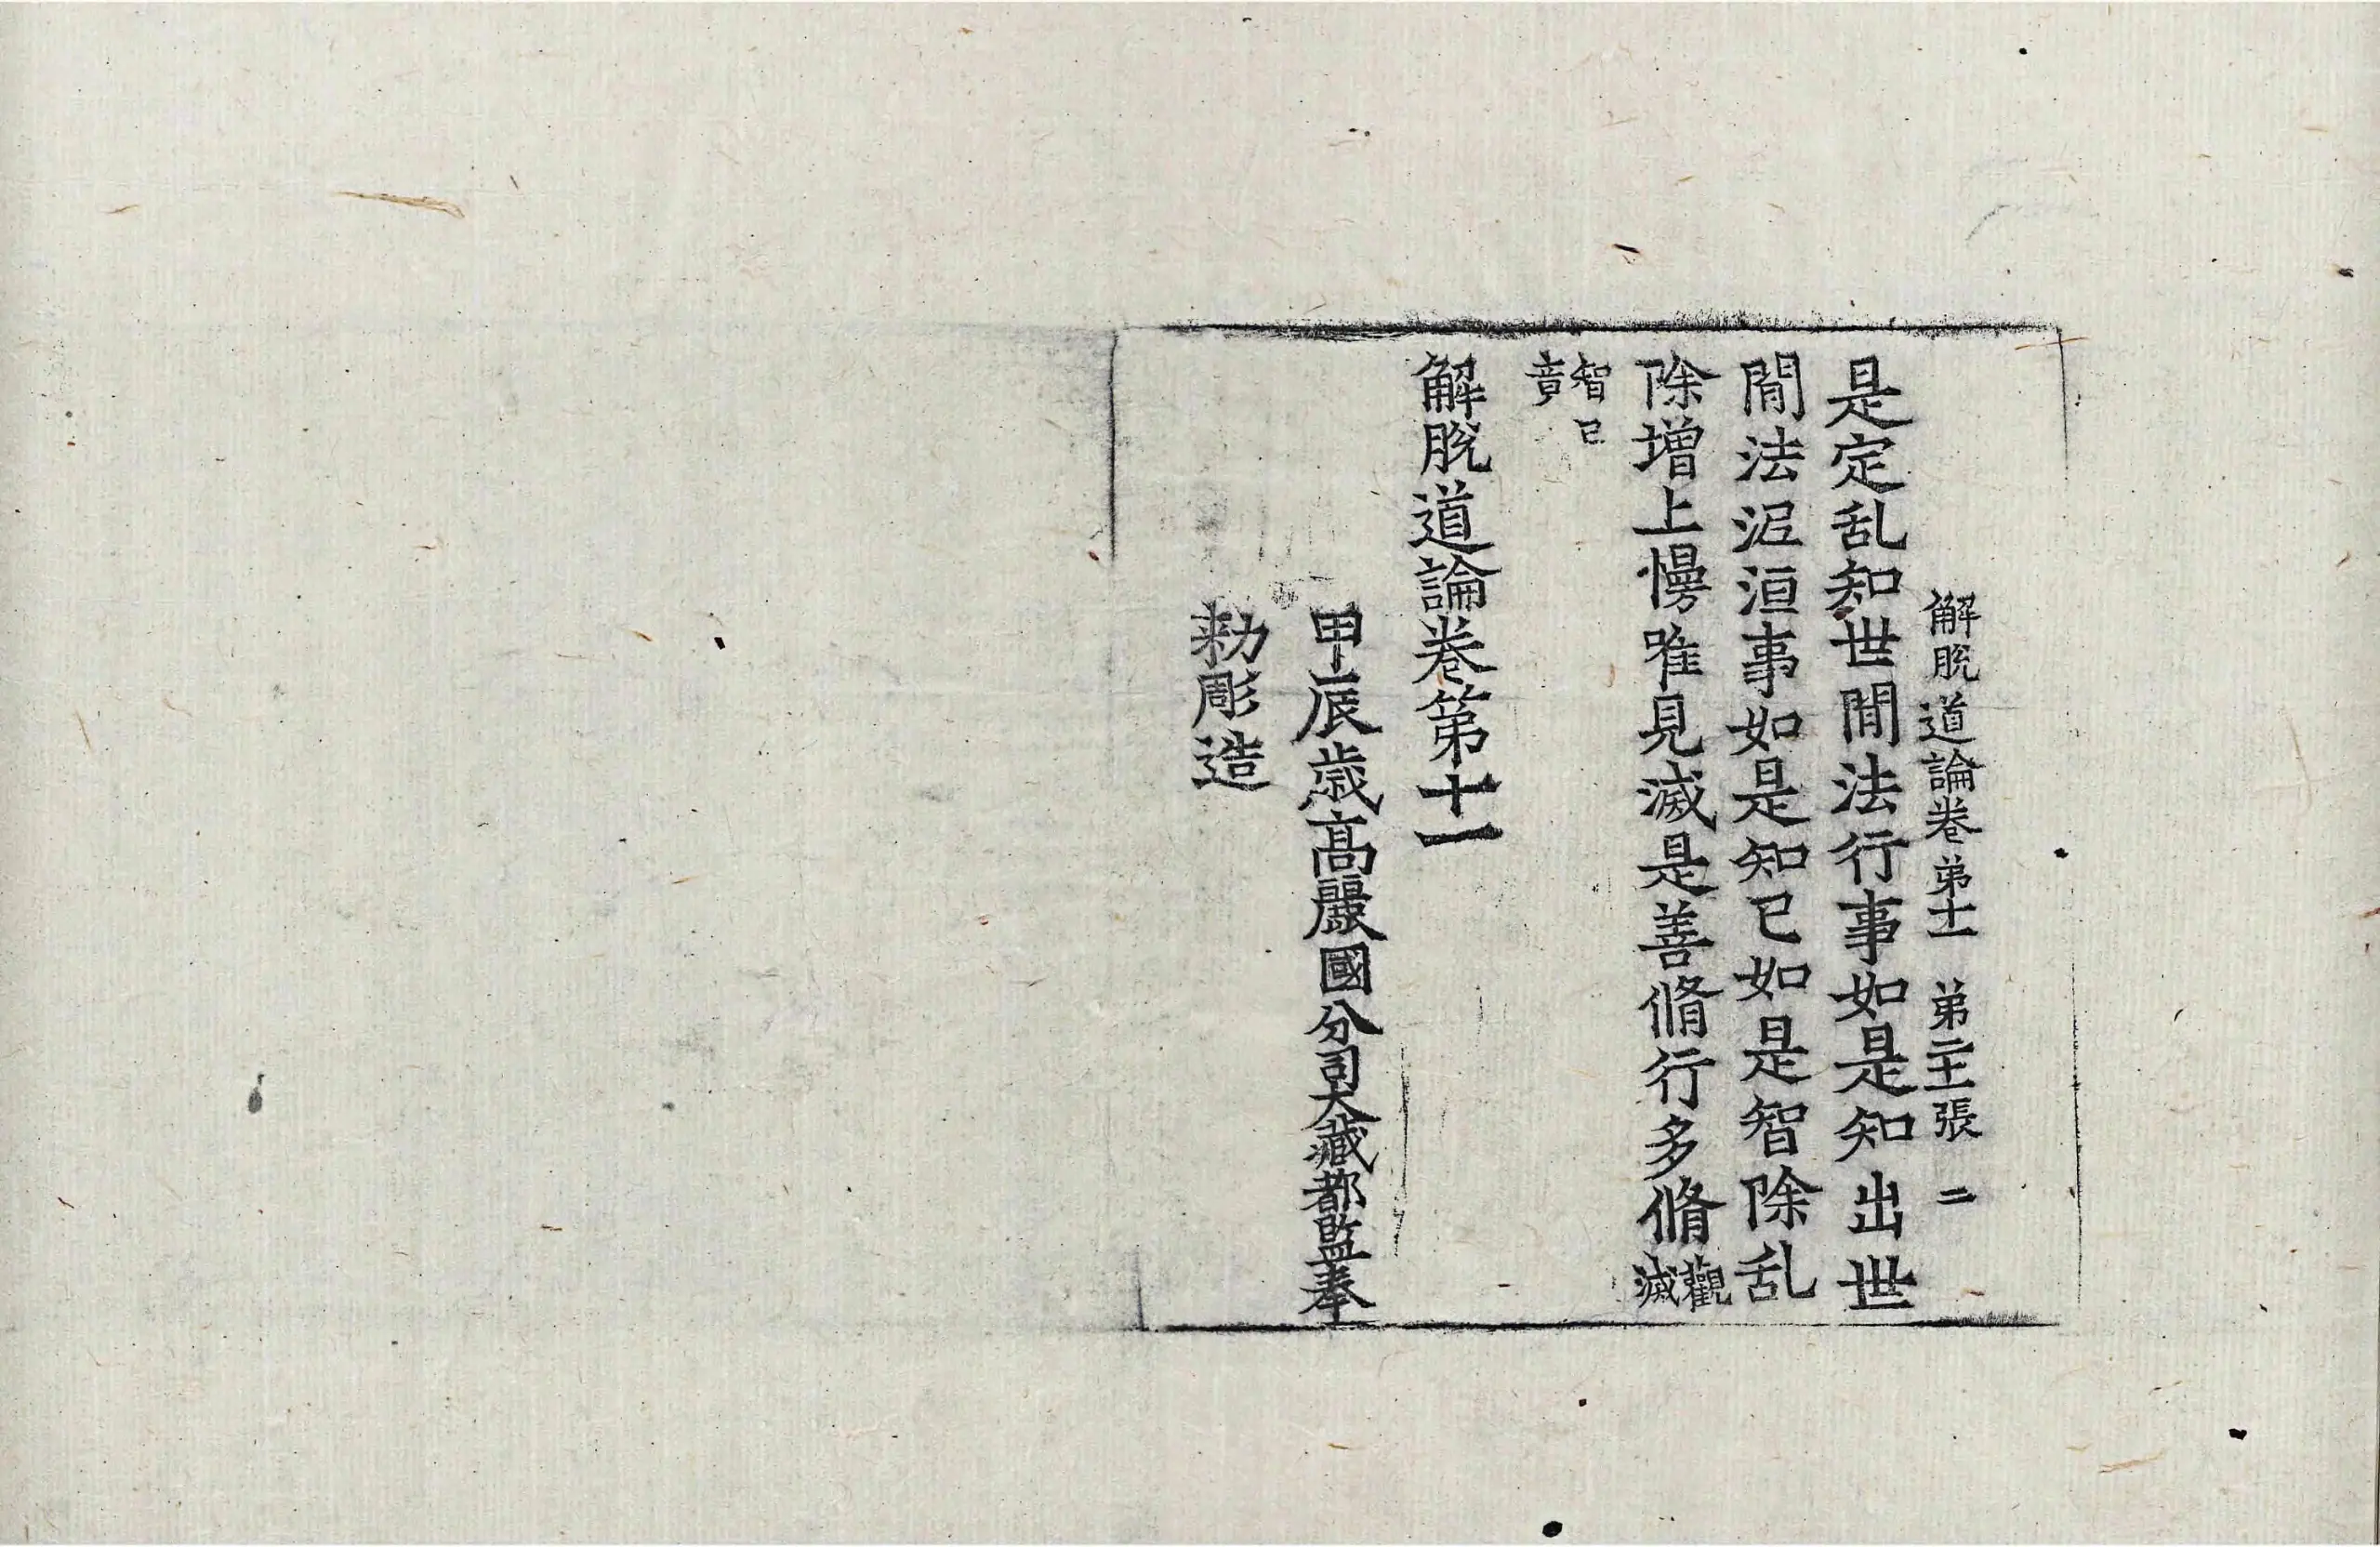 解脫道論卷第十一 第二十一張 二
是定乱知世閒法行事如是知出世
閒法泥洹事如是知已如是智除乱
除增上慢唯見滅是善脩行多脩觀滅
智已竟
解脫道論卷第十一
甲辰歳高麗國分司大藏都監奉
勑彫造